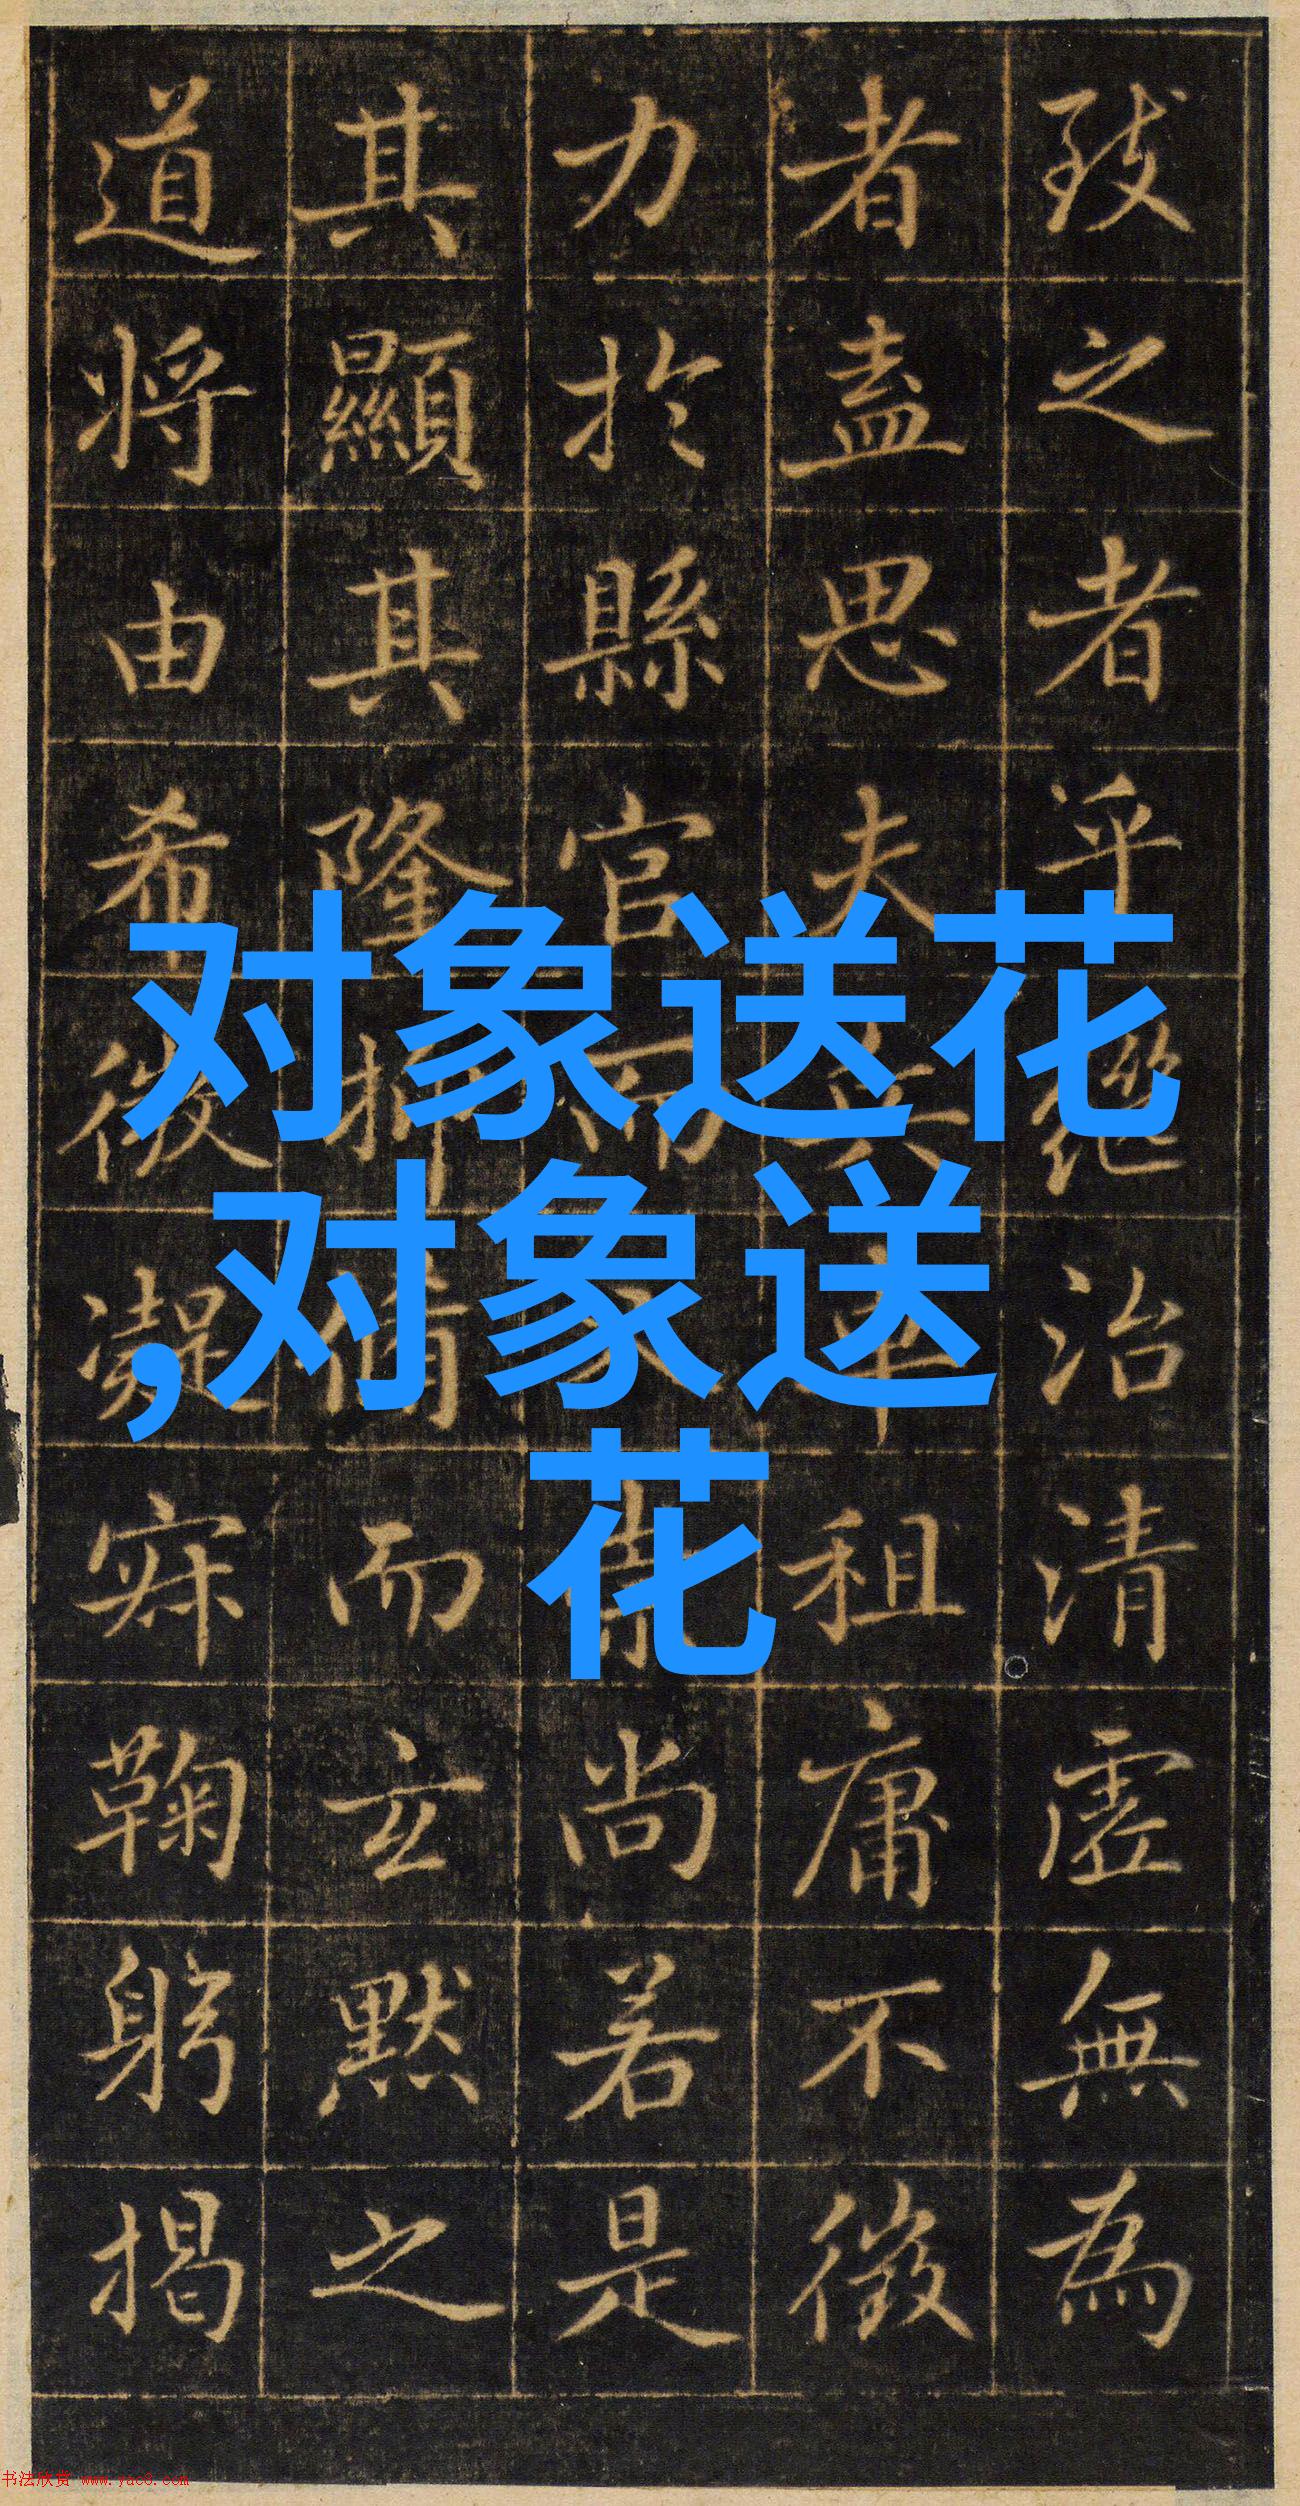 对象送花
,对象送
花
致之者乎繼治清虛無為
者盡思夫租庸不徵
力於縣官而尚若是
其顯其隆而玄默之
道將由希微凝寂鞠躬揭
书法欣赏 www.yac8.com